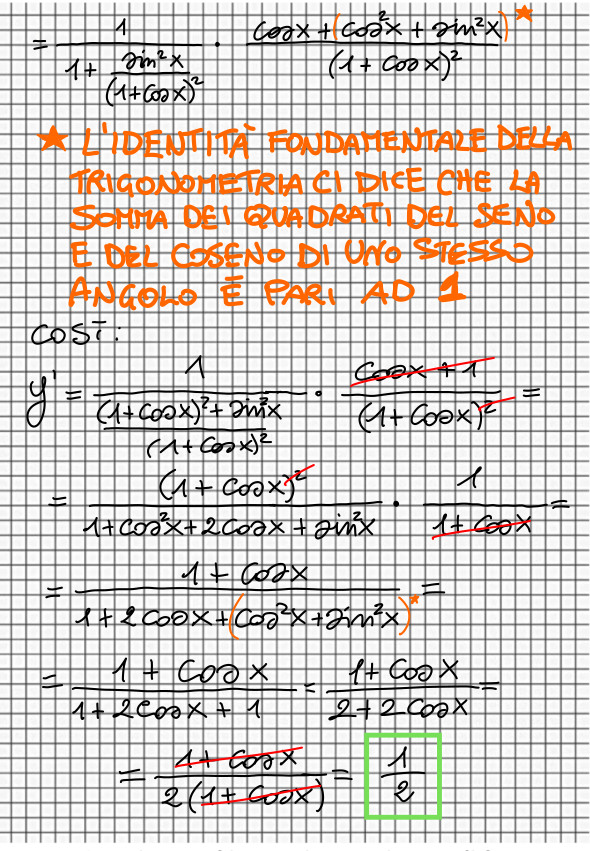 = 1 / (1 + sin²x / (1+cosx)²) · (cosx + (cos²x + sin²x)) / (1 + cosx)² ★
★ L'IDENTITÀ FONDAMENTALE DELLA
TRIGONOMETRIA CI DICE CHE LA
SOMMA DEI QUADRATI DEL SENO
E DEL COSENO DI UNO STESSO
ANGOLO È PARI AD 1
COSÌ:
y' = 1 / (((1+cosx)² + sin²x) / (1+cosx)²) · (cosx + 1) / (1 + cosx)² =
= (1 + cosx)² / (1+cos²x+2cosx + sin²x) · 1 / (1 + cosx) =
= (1 + cosx) / (1 + 2cosx + (cos²x + sin²x)★) =
= (1 + cosx) / (1 + 2cosx + 1) = (1 + cosx) / (2 + 2cosx) =
= (1 + cosx) / (2(1 + cosx)) = 1/2